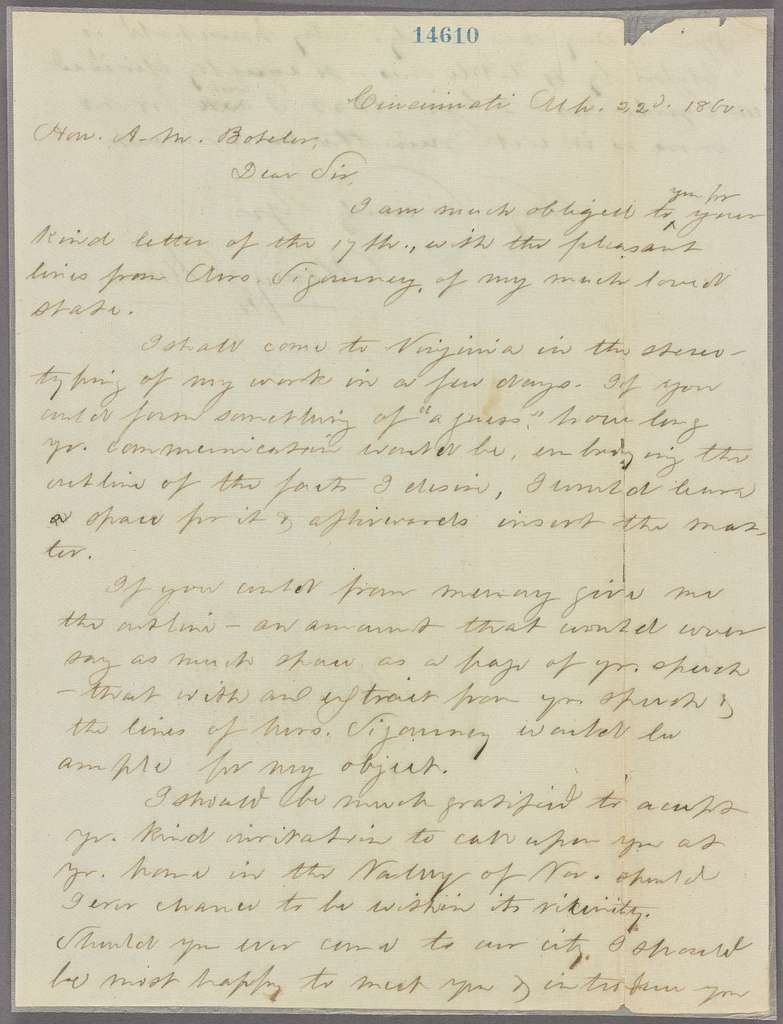 14610
Cincinnati Mh. 22d. 1860.
Hon. A. M. Boteler,
Dear Sir,
you for
I am much obliged to ^ your
kind letter of the 17th., with the pleasant
lines from Mrs. Sigourney, of my much loved
state.
I shall come to Virginia in the stereo-
typing of my work in a few days. If you
could form something of "a guess," how long
yr. communication would be, embodying the
outline of the facts I desire, I would leave
a space for it & afterwards insert the mat-
ter.
If you could from memory give me
the outline - an amount that would cover
say as much space as a page of yr. speech
- that with an extract from yr. speech &
the lines of Mrs. Sigourney would be
ample for my object.
I should be much gratified to accept
yr. kind invitation to call upon you at
yr. home in the Valley of Va. should
I ever chance to be within its vicinity.
Should you ever come to our city I should
be most happy to meet you & introduce you